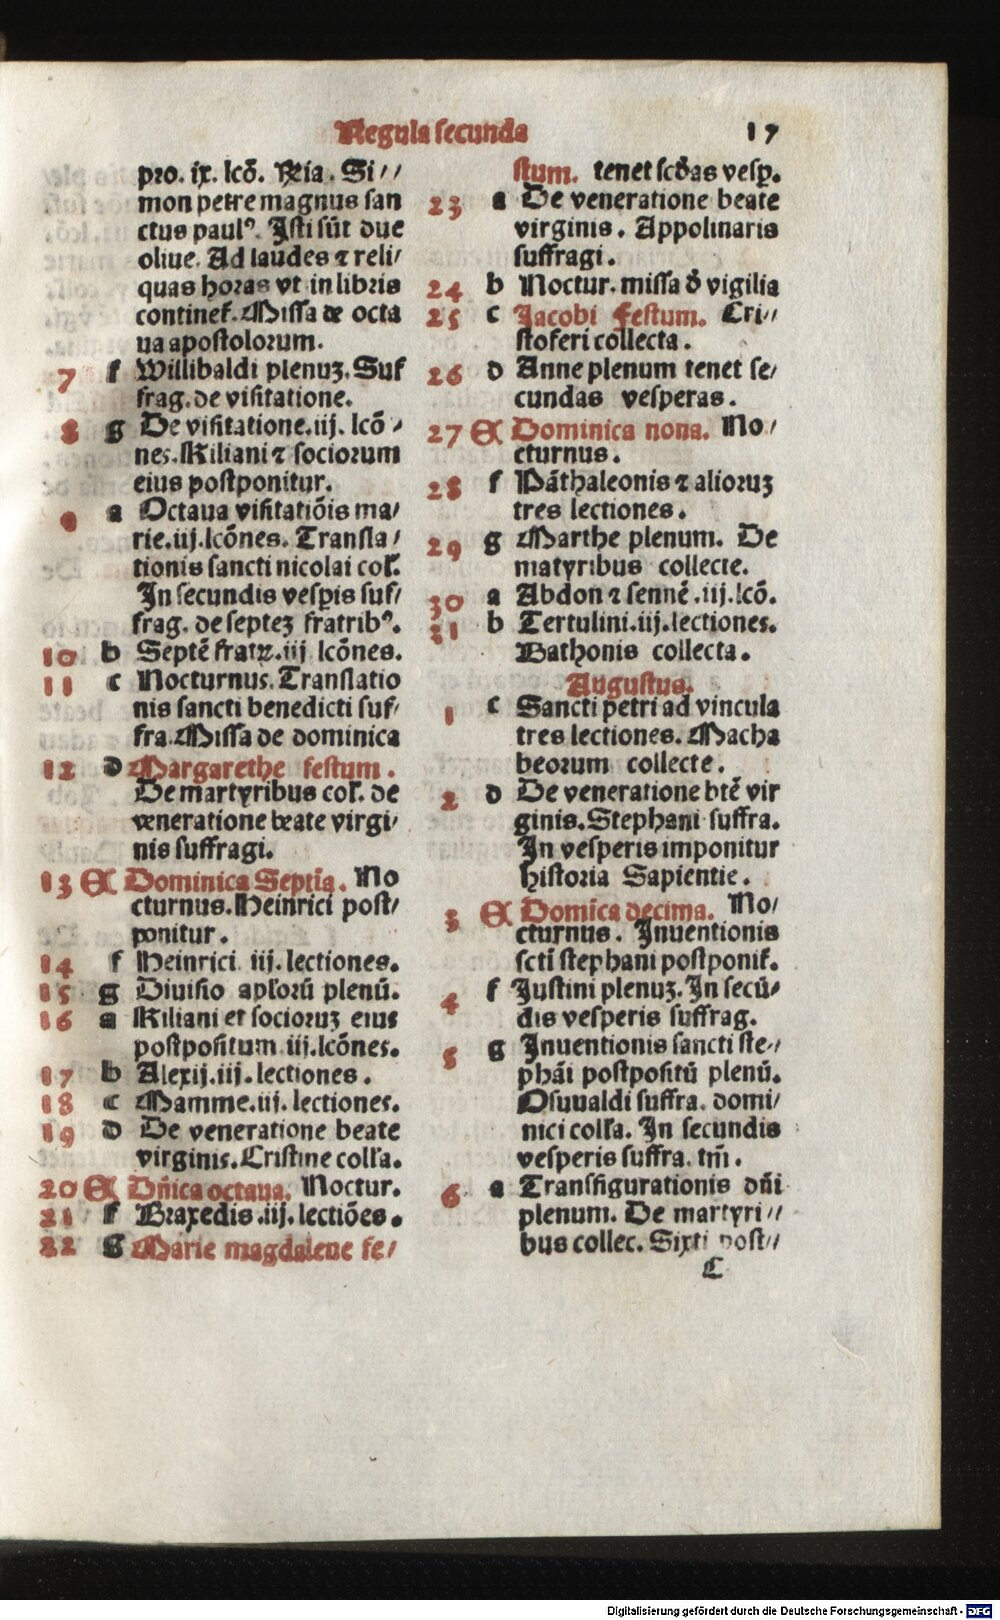 Regula secunda 17
pro. ix. lcō. R̃ia. Si//
mon petre magnus san
ctus paulꝰ. Isti sūt due
oliue. Ad laudes ⁊ reli/
quas horas vt in libris
continet̃. Missa de octa
ua apostolorum.
7 f Willibaldi plenuꝫ. Suf
frag. de visitatione.
8 g De visitatione. iij. lcō/
nes. Kiliani ⁊ sociorum
eius postponitur.
9 a Octaua visitatiōis ma/
rie. iij. lcōnes. Transla/
tionis sancti nicolai col̃.
In secundis vesp̱is suf/
frag. de septeꝫ fratribꝰ.
10 b Septē fratꝝ. iij. lcōnes.
11 c Nocturnus. Translatio
nis sancti benedicti suf/
fra. Missa de dominica
12 d Margarethe festum.
De martyribus col̃. de
veneratione beate virgi/
nis suffragi.
13 E Dominica Septīa. No
cturnus. Heinrici post/
ponitur.
14 f Heinrici. iij. lectiones.
15 g Diuisio apl̃orū plenū.
16 a Kiliani et socioruꝫ eius
postpositum. iij. lcōnes.
17 b Alexij. iij. lectiones.
18 c Mamme. iij. lectiones.
19 d De veneratione beate
virginis. Cristine coll̃a.
20 E Dn̄ica octaua. Noctur.
21 f Braxedis. iij. lectiōes.
22 g Marie magdalene fe/
stum. tenet scd̃as vesp̱.
23 a De veneratione beate
virginis. Appolinaris
suffragi.
24 b Noctur. missa d̃ vigilia
25 c Jacobi festum. Cri//
stoferi collecta.
26 d Anne plenum tenet se/
cundas vesperas.
27 E Dominica nona. No/
cturnus.
28 f Pāthaleonis ⁊ alioruꝫ
tres lectiones.
29 g Marthe plenum. De
matyribus collecte.
30 a Abdon ⁊ sennē. iij. lcō.
31 b Tertulini. iij. lectiones.
Bathonis collecta.
Augustus.
1 c Sancti petri ad vincula
tres lectiones. Macha
beorum collecte.
2 d De veneratione btē vir
ginis. Stephani suffra.
In vesperis imponitur
historia Sapientie.
3 E Domīca decima. No/
cturnus. Inuentionis
sctī stephani postponit̃.
4 f Justini plenuꝫ. In secū/
dis vesperis suffrag.
5 g Inuentionis sancti ste//
phāi postpositū plenū.
Osuualdi suffra. domi/
nici coll̃a. In secundis
vesperis suffra. tm̄.
6 a Transfigurationis dn̄i
plenum. De martyri//
bus collec. Sixti post//
C
Digitalisierung gefördert durch die Deutsche Forschungsgemeinschaft - DFG